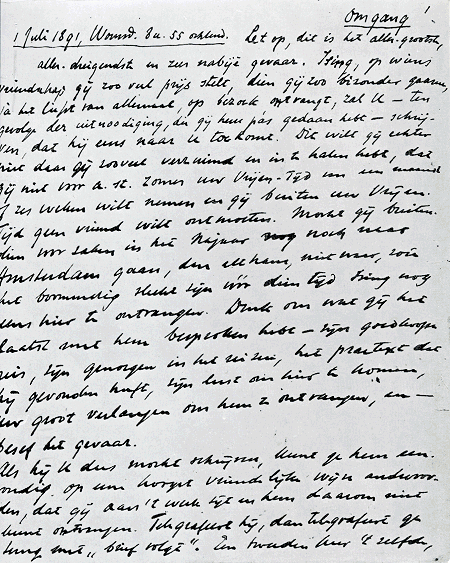 Omgang!
1 Juli 1891, Woensd. 8 u. 55 ochtend. Let op, dit is het aller-grootste,
aller-dreigendste en zeer nabije gevaar. Ising, op wiens
vriendschap gij zoo veel prijs stelt, dien gij zoo bizonder gaarne,
ja het liefst van allemaal, op bezoek ontvangt, zal U – ten
gevolge der uitnoodiging, die gij hem pas gedaan hebt – schrij-
ven, dat hij eens naar U toe komt. Dit wilt gij echter
niet daar gij zooveel verzuimd en in te halen hebt, dat
gij niet vóór a. st. Zomer uw Vrijen-Tijd van een maand
of zes weken wilt nemen en gij buiten uw Vrijen-
Tijd geen vriend wilt ontmoeten. Mocht gij buiten-
dien voor zaken in het Najaar nog naar
Amsterdam gaan, dan
het slecht zijn vóór dien tijd Ising nog
eens hier te ontvangen. Denk om wat gij het
laatst met hem besproken hebt – zijn goedkoope
reis, zijn genoegen in het reizen, het pretext dat
hij gevonden heeft, zijn lust om hier te komen,
uw groot verlangen om hem te ontvangen, en –
besef het gevaar.
Als hij U dus mocht schrijven, kunt ge hem een-
voudig op een hoogst vriendelijke wijze antwoor-
den, dat gij aan 't werk zijt en hem daarom niet
kunt ontvangen. Telegrafeert hij, dan telegrafeert ge
terug met „brief volgt". Ten tweeden keer 't zelfde,